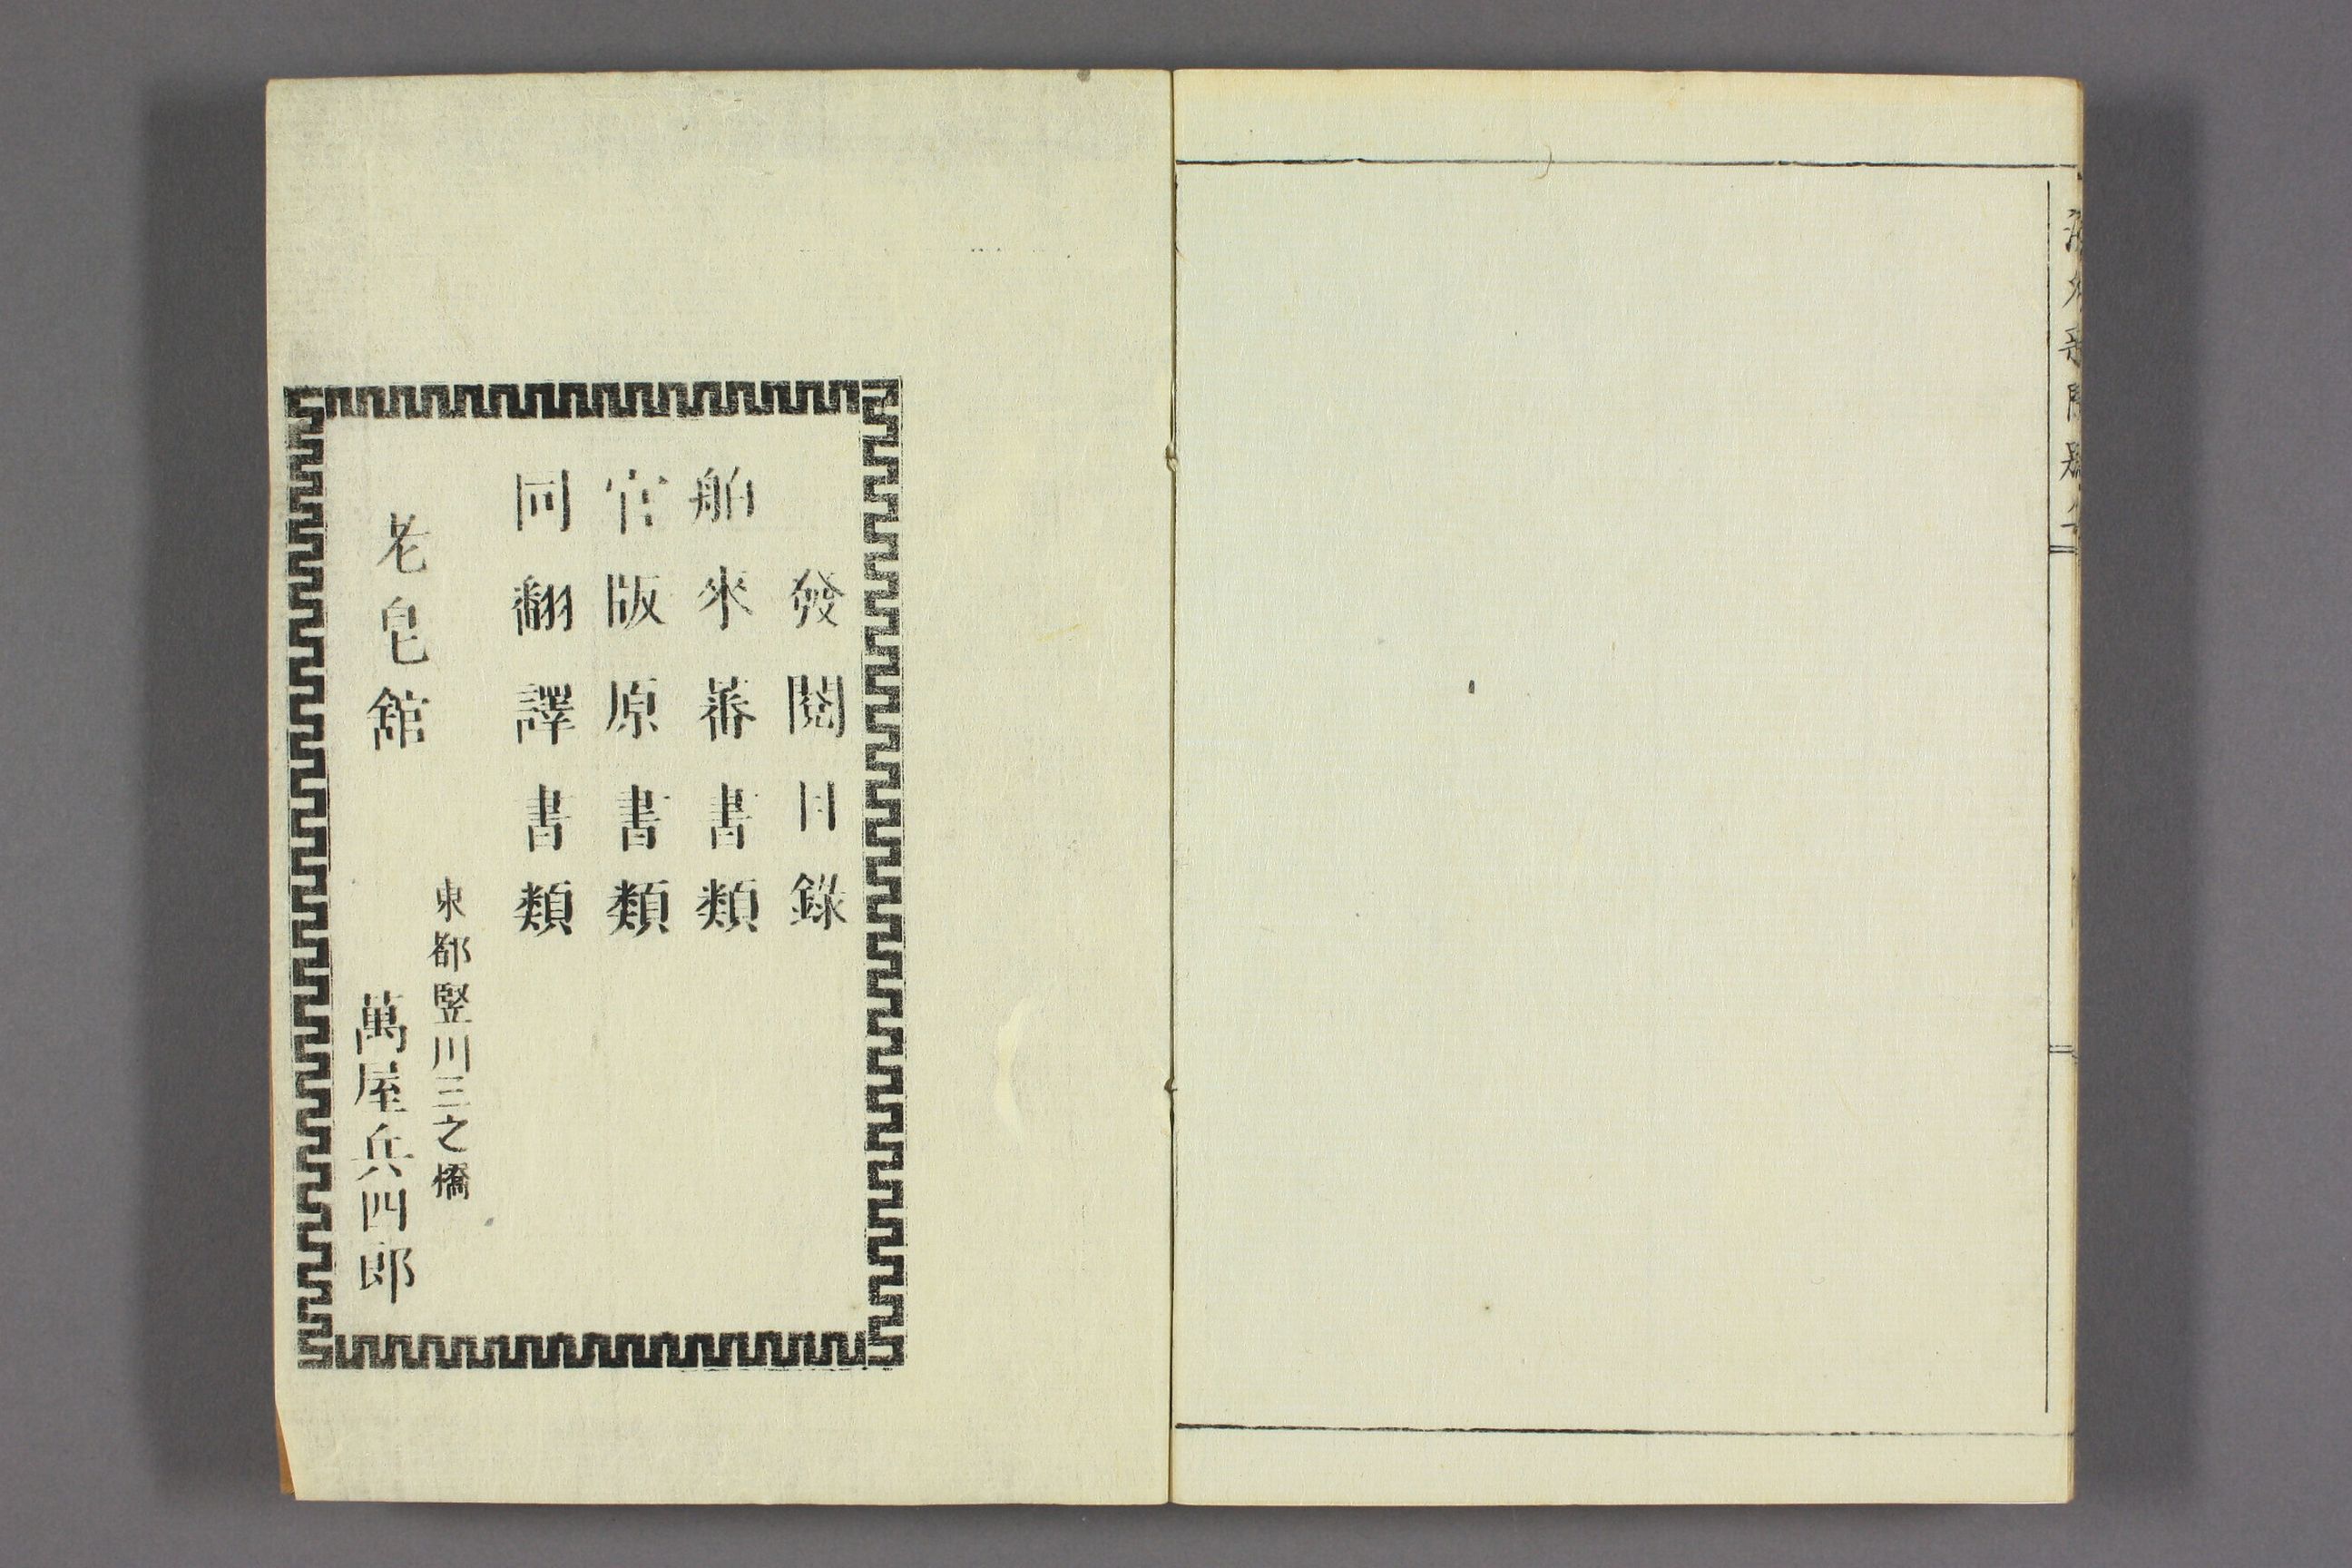 發閱目錄
舶來蕃書類
官版原書類
同翻譯書類
東都竪川三之橋
老皂館
萬屋兵四郎